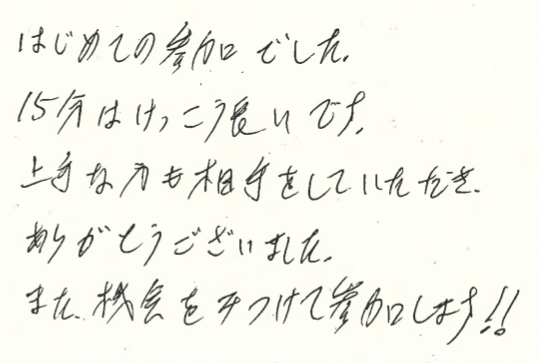 はじめての参加でした。
15分はけっこう長いです。
上手な方も相手をしていただき、
ありがとうございました。
また、機会をみつけて参加します!!